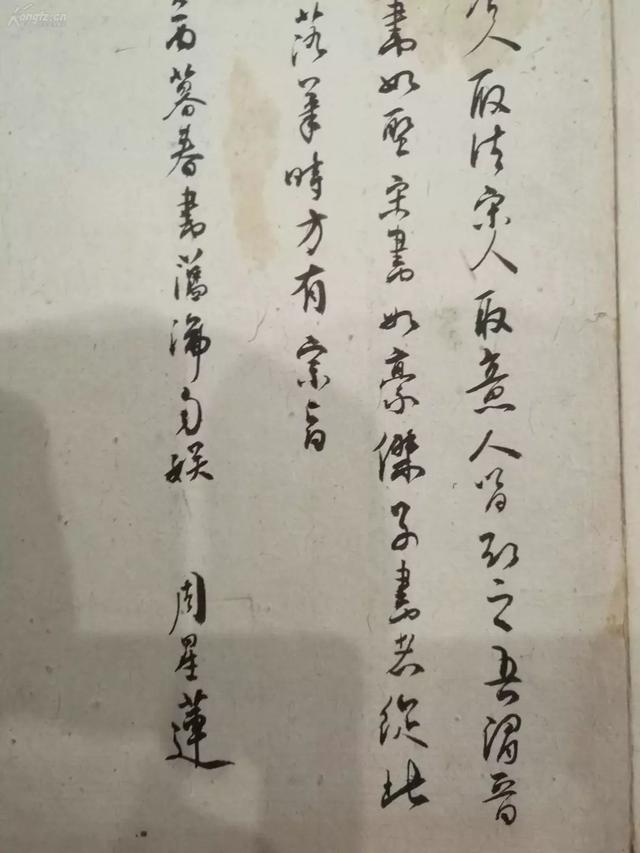 人取法宋人取意人皆知之吾謂晉
書如聖宋書如豪傑學書者從此
落筆時方有宗旨
暮春書舊自娛
周星蓮
Kongfz.cn